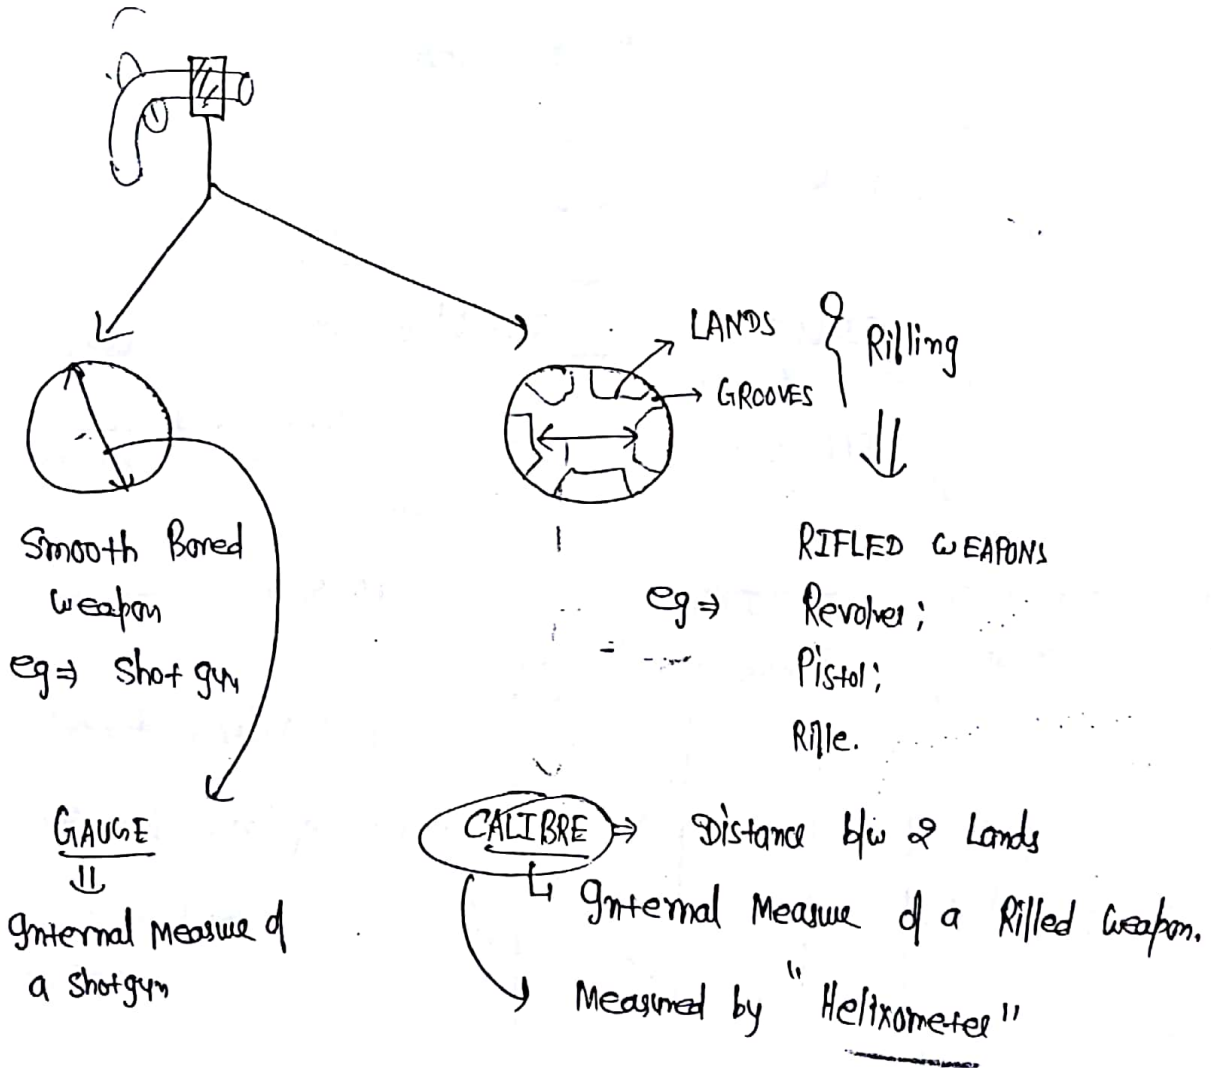 LANDS
GROOVES
Rifling
Smooth Bored
weapon
eg ⇒ Shot gun
RIFLED WEAPONS
eg ⇒ Revolver;
Pistol;
Rifle.
GAUGE
Internal Measure of
a Shotgun
CALIBRE ⇒ Distance b/w 2 Lands
Internal Measure of a Rifled Weapon.
Measured by "Helixometer"